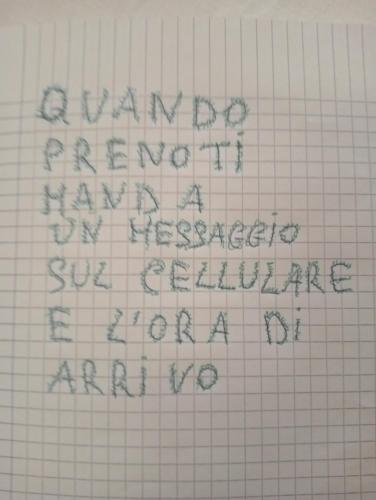 QUANDO
PRENOTi
MANDA
UN MESSAGGiO
SUL CELLULARE
E L'ORA Di
ARRiVO